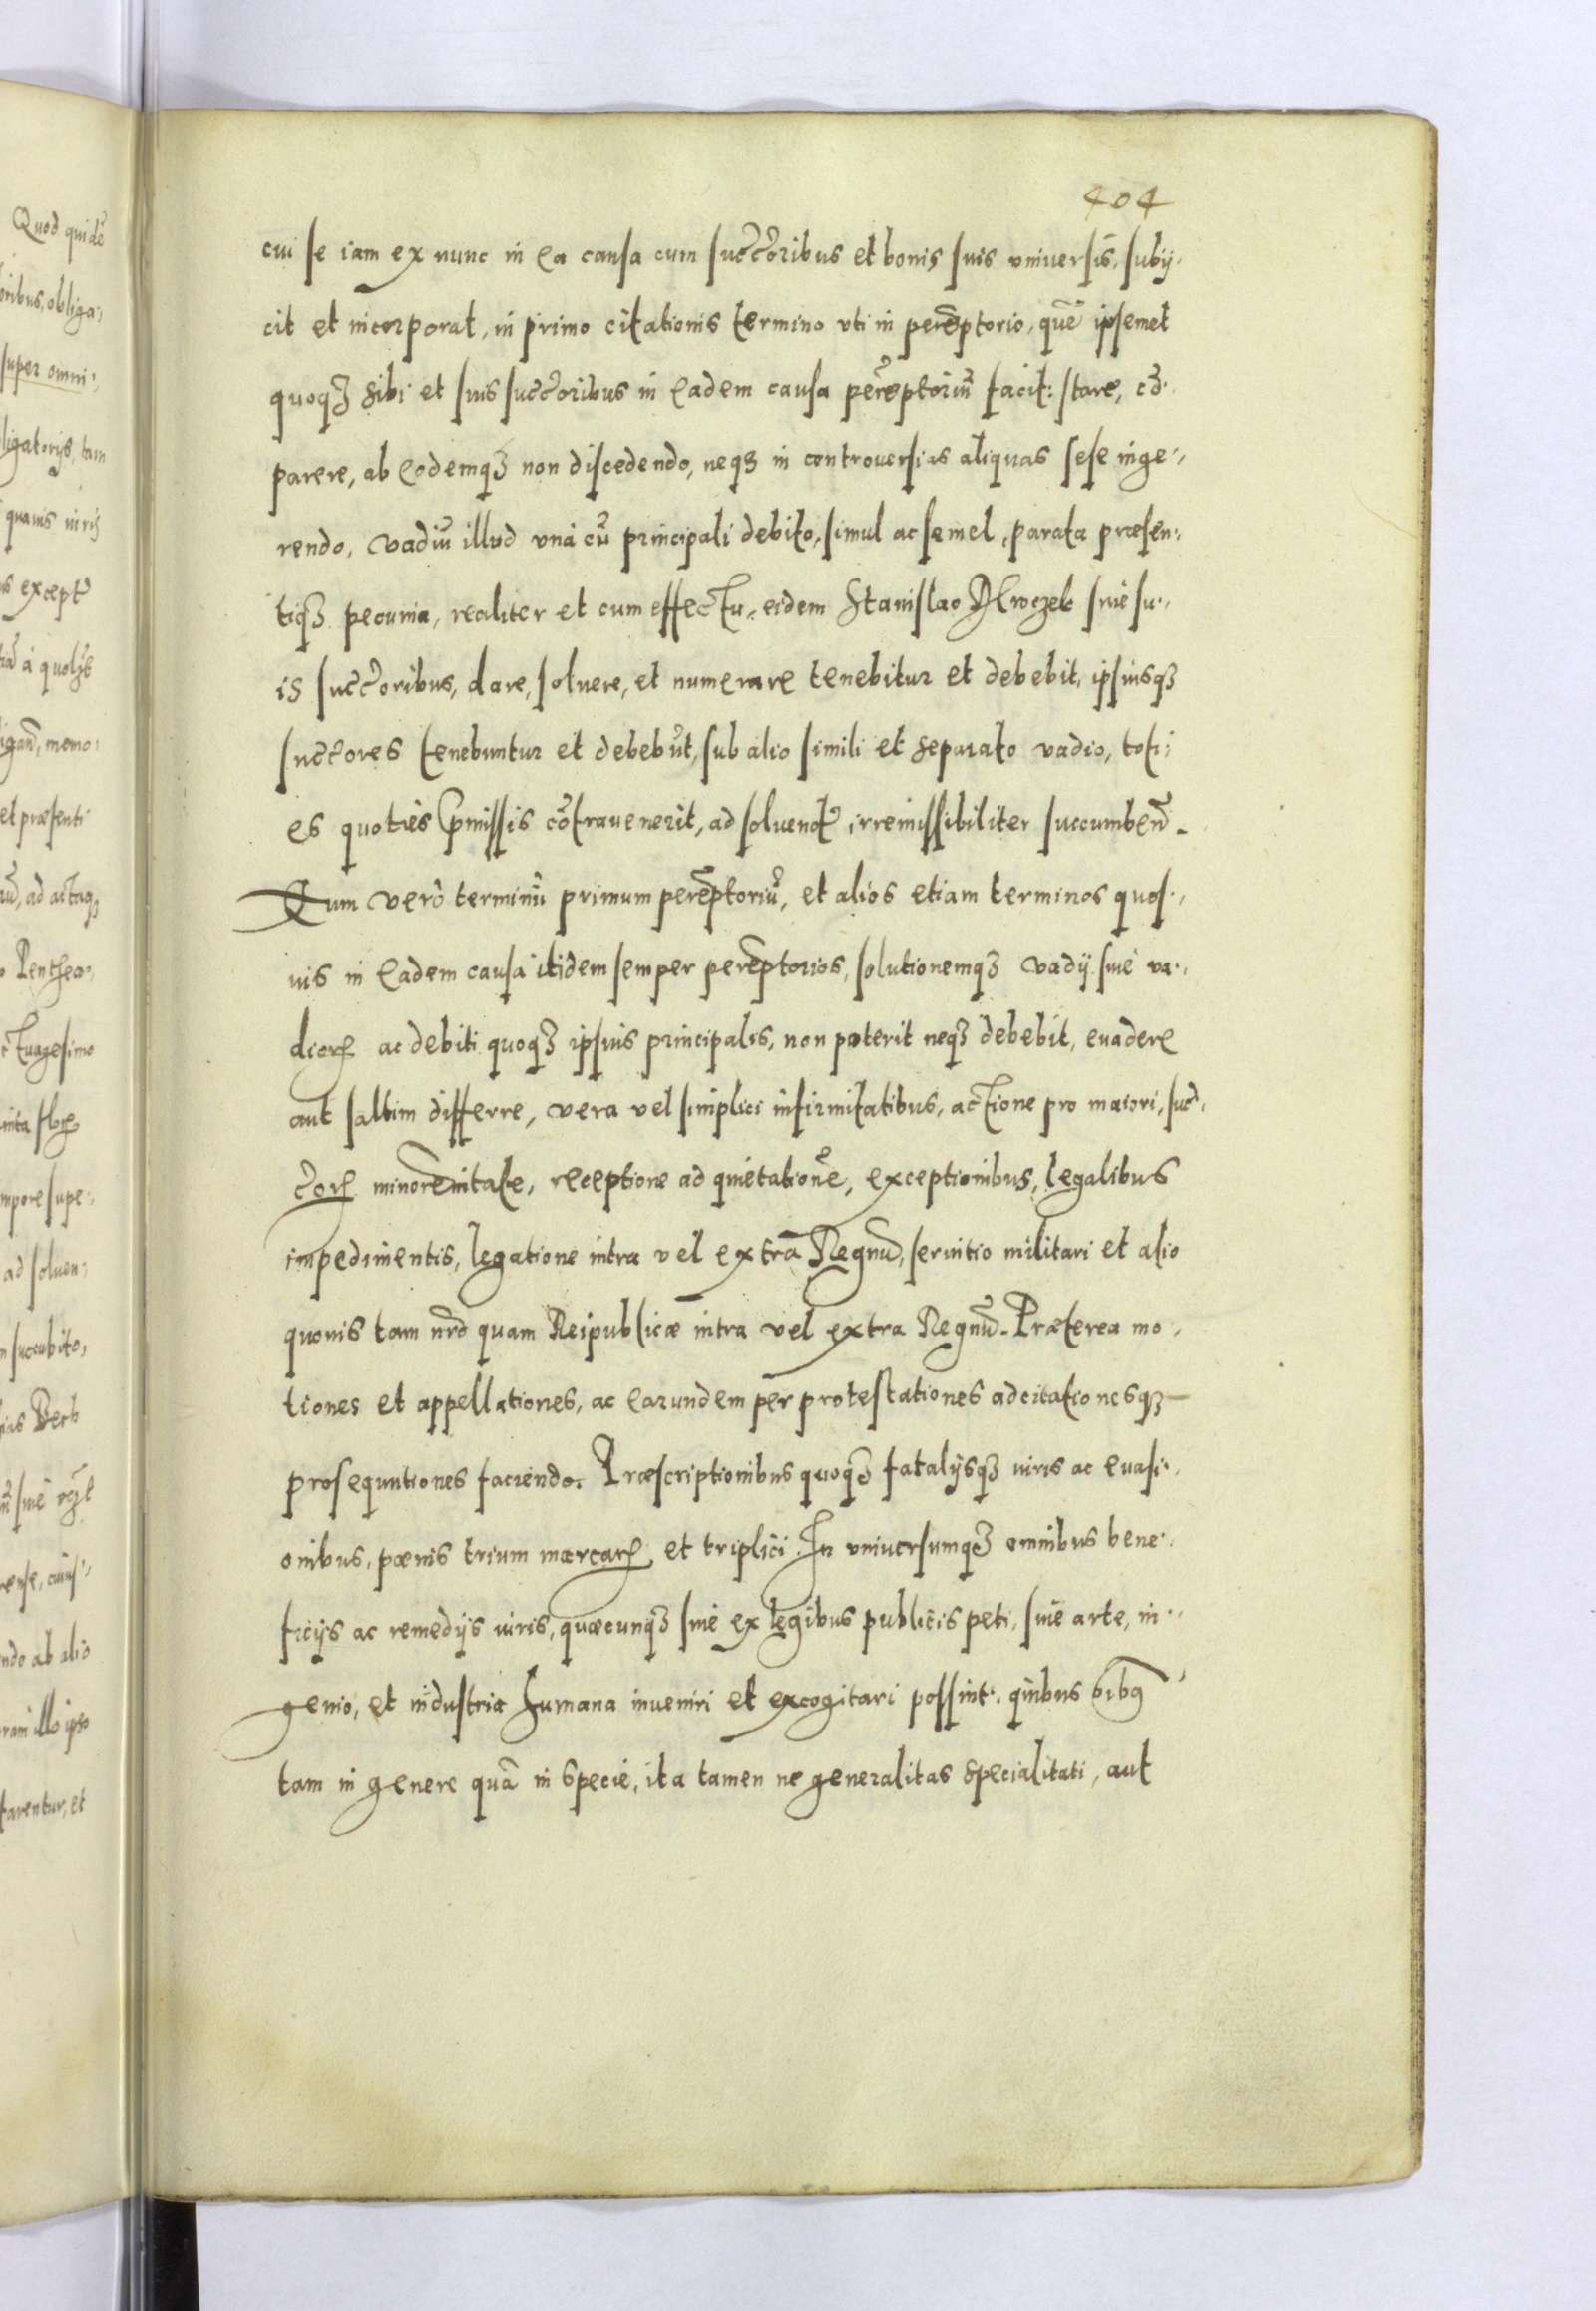 404
cui se iam ex nunc in ea causa cum succ͠oribus et bonis suis uniuersis, subij-
cit et incorporat, in primo citationis termino vti in perẽptorio, quẽ ipsemet
quoqꝫ sibi et suis succ͠oribus in eadem causa perẽptoriũ facit: stare, cõ-
parere, ab eodemqꝫ non discedendo, neqꝫ in controuersias aliquas sese inge-
rendo, vadiũ illud vná cũ principali debito, simul ac semel, parata præsen-
tiqꝫ pecunia, realiter et cum effectu, eidem Stanislao siue su-
is succ͠oribus, dare, soluere, et numerare tenebitur et debebit, ipsiusqꝫ
succ͠ores tenebuntur et debebũt, sub alio simili et separato vadio, toti-
es quoties p̃missis cõtrauenerit, ad soluend̃ irremissibiliter succumbeñ.
Quum verò terminũ primum perẽptoriũ, et alios etiam terminos quos-
uis in eadem causa itidem semper perẽptorios, solutionemqꝫ vadij siue va-
dioꝝ ac debiti quoqꝫ ipsius principalis, non poterit neqꝫ debebit, euadere
aut saltim differre, vera vel simplici infirmitatibus, actione pro maiori, suc-
c͠oꝝ minorẽnitate, receptione ad quietationẽ, exceptionibus, legalibus
impedimentis, legatione intra vel extra Regnũ, seruitio militari et alio
quouis tam nr̃o quam Reipublicæ intra vel extra Regnũ. Præterea mo-
tiones et appellationes, ac earundem per protestationes adcitationesqꝫ
prosequutiones faciendo. Præscriptionibus quoqꝫ fatalijsqꝫ iuris ac euasi-
onibus, pœnis trium marcaꝝ et triplici. In uniuersumqꝫ omnibus bene-
ficijs ac remedijs iuris, quæcunqꝫ siue ex legibus publicis peti, siue arte, in-
genio, et industria humana inueniri et excogitari possint. quibus oĩbꝫ
tam in genere quã in specie, ita tamen ne generalitas specialitati, aut